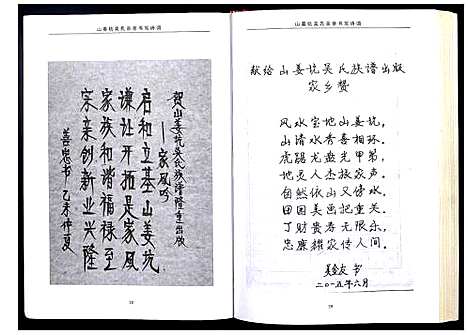 山姜坑吴氏宗亲书写诗选
贺山姜坑吴氏族谱隆重出版
——家风吟
启和立基山姜坑
谦让开拓是家风
家族和谐福禄至
宗亲创新业兴隆
善忠书 乙未仲夏
山姜坑吴氏宗亲书写诗选
献给山姜坑吴氏族谱出版
家乡赞
风水宝地山姜坑，
山清水秀喜相环。
虎踞龙盘光甲弟，
地灵人杰振家声。
自然依山又傍水，
田园美画把重关。
丁财贵寿无限乐，
忠廉耀宗传人间。
书
二〇一五年六月